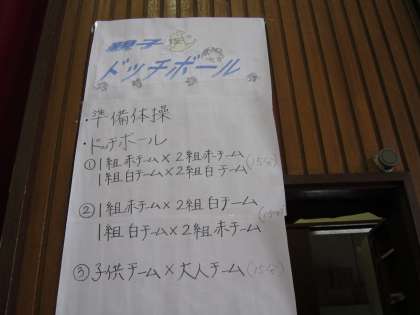 親子
ドッチボール
・準備体操
・ドッチボール
①1組赤チーム×2組赤チーム
1組白チーム×2組白チーム (15分)
②1組赤チーム×2組白チーム
1組白チーム×2組赤チーム (15分)
③子供チーム×大人チーム(15分)